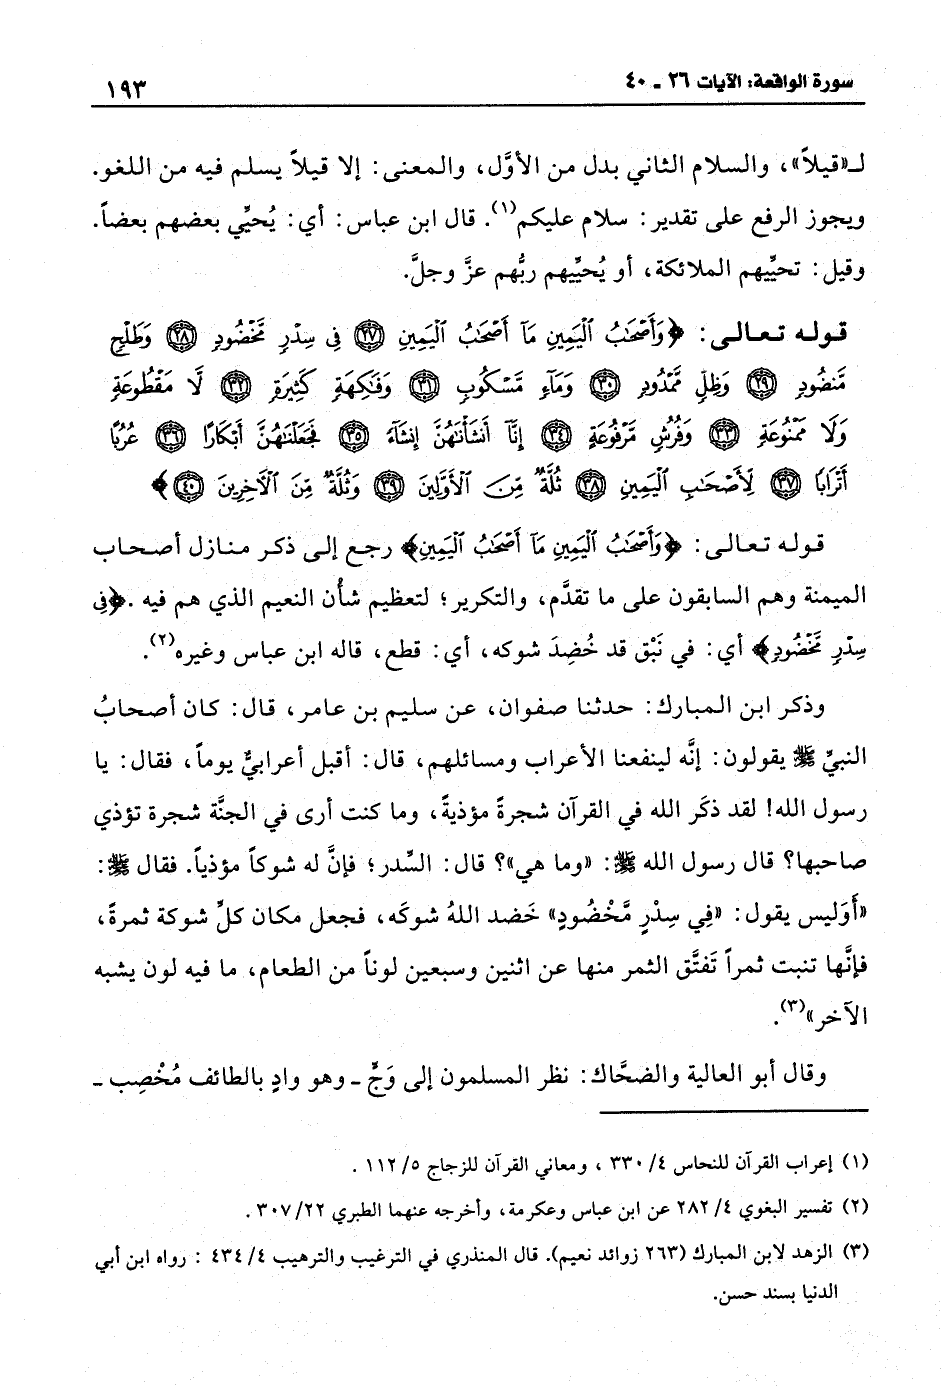 سورة الواقعة: الآيات ٢٦ ـ ٤٠
١٩٣
لـ«قيلاً»، والسلام الثاني بدل من الأوَّل، والمعنى: إلا قيلاً يسلم فيه من اللغو.
ويجوز الرفع على تقدير: سلام عليكم(١). قال ابن عباس: أي: يُحيِّي بعضهم بعضاً.
وقيل: تحيِّيهم الملائكة، أو يُحيِّيهم ربُّهم عزَّ وجلَّ.
قوله تعالى: ﴿وَأَصْحَٰبُ ٱلْيَمِينِ مَآ أَصْحَٰبُ ٱلْيَمِينِ ٢٧ فِى سِدْرٍ مَّخْضُودٍ ٢٨ وَطَلْحٍ
مَّنضُودٍ ٢٩ وَظِلٍّ مَّمْدُودٍ ٣٠ وَمَآءٍ مَّسْكُوبٍ ٣١ وَفَٰكِهَةٍ كَثِيرَةٍ ٣٢ لَّا مَقْطُوعَةٍ
وَلَا مَمْنُوعَةٍ ٣٣ وَفُرُشٍ مَّرْفُوعَةٍ ٣٤ إِنَّآ أَنشَأْنَٰهُنَّ إِنشَآءً ٣٥ فَجَعَلْنَٰهُنَّ أَبْكَارًا ٣٦ عُرُبًا
أَتْرَابًا ٣٧ لِّأَصْحَٰبِ ٱلْيَمِينِ ٣٨ ثُلَّةٌ مِّنَ ٱلْأَوَّلِينَ ٣٩ وَثُلَّةٌ مِّنَ ٱلْآخِرِينَ ٤٠﴾
قوله تعالى: ﴿وَأَصْحَٰبُ ٱلْيَمِينِ مَآ أَصْحَٰبُ ٱلْيَمِينِ﴾ رجع إلى ذكر منازل أصحاب
الميمنة وهم السابقون على ما تقدَّم، والتكرير؛ لتعظيم شأن النعيم الذي هم فيه .﴿فِى
سِدْرٍ مَّخْضُودٍ﴾ أي: في نَبْق قد خُضِدَ شوكه، أي: قطع، قاله ابن عباس وغيره(٢).
وذكر ابن المبارك: حدثنا صفوان، عن سليم بن عامر، قال: كان أصحابُ
النبيِّ ﷺ يقولون: إنَّه لينفعنا الأعراب ومسائلهم، قال: أقبل أعرابيٌّ يوماً، فقال: يا
رسول الله! لقد ذكَر الله في القرآن شجرةً مؤذيةً، وما كنت أرى في الجنَّة شجرة تؤذي
صاحبها؟ قال رسول الله ﷺ: «وما هي»؟ قال: السِّدر؛ فإنَّ له شوكاً مؤذياً. فقال ﷺ:
«أَوَليس يقول: «فِي سِدْرٍ مَّخْضُودٍ» خَضد اللهُ شوكَه، فجعل مكان كلِّ شوكة ثمرةً،
فإنَّها تنبت ثمراً تَفتَّق الثمر منها عن اثنين وسبعين لوناً من الطعام، ما فيه لون يشبه
الآخر»(٣).
وقال أبو العالية والضحَّاك: نظر المسلمون إلى وَجٍّ ـ وهو وادٍ بالطائف مُخْصِب ـ
(١) إعراب القرآن للنحاس ٤/ ٣٣٠ ، ومعاني القرآن للزجاج ٥/ ١١٢ .
(٢) تفسير البغوي ٤/ ٢٨٢ عن ابن عباس وعكرمة، وأخرجه عنهما الطبري ٢٢/ ٣٠٧ .
(٣) الزهد لابن المبارك (٢٦٣ زوائد نعيم). قال المنذري في الترغيب والترهيب ٤/ ٤٣٤ : رواه ابن أبي
الدنيا بسند حسن.